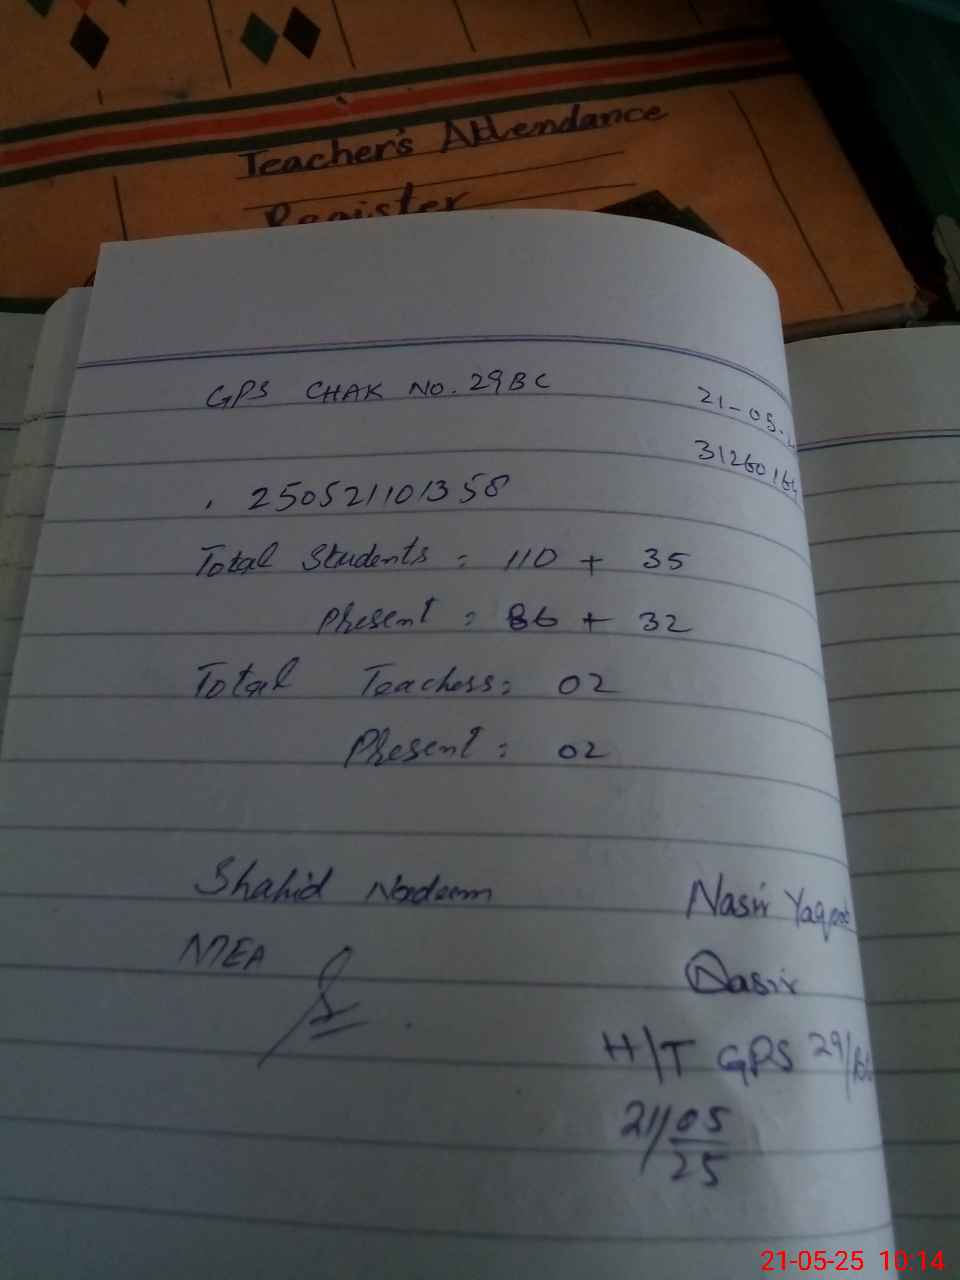 Teacher's Attendance
Register
GPS CHAK NO. 29BC
21-05-2
31260164
. 250521101358
Total Students = 110 + 35
Present = 86 + 32
Total Teachers = 02
Present = 02
Shahid Nadeem
Nasir
MEA
H/T GPS 29/BC
21/05
25
21-05-25 10:14